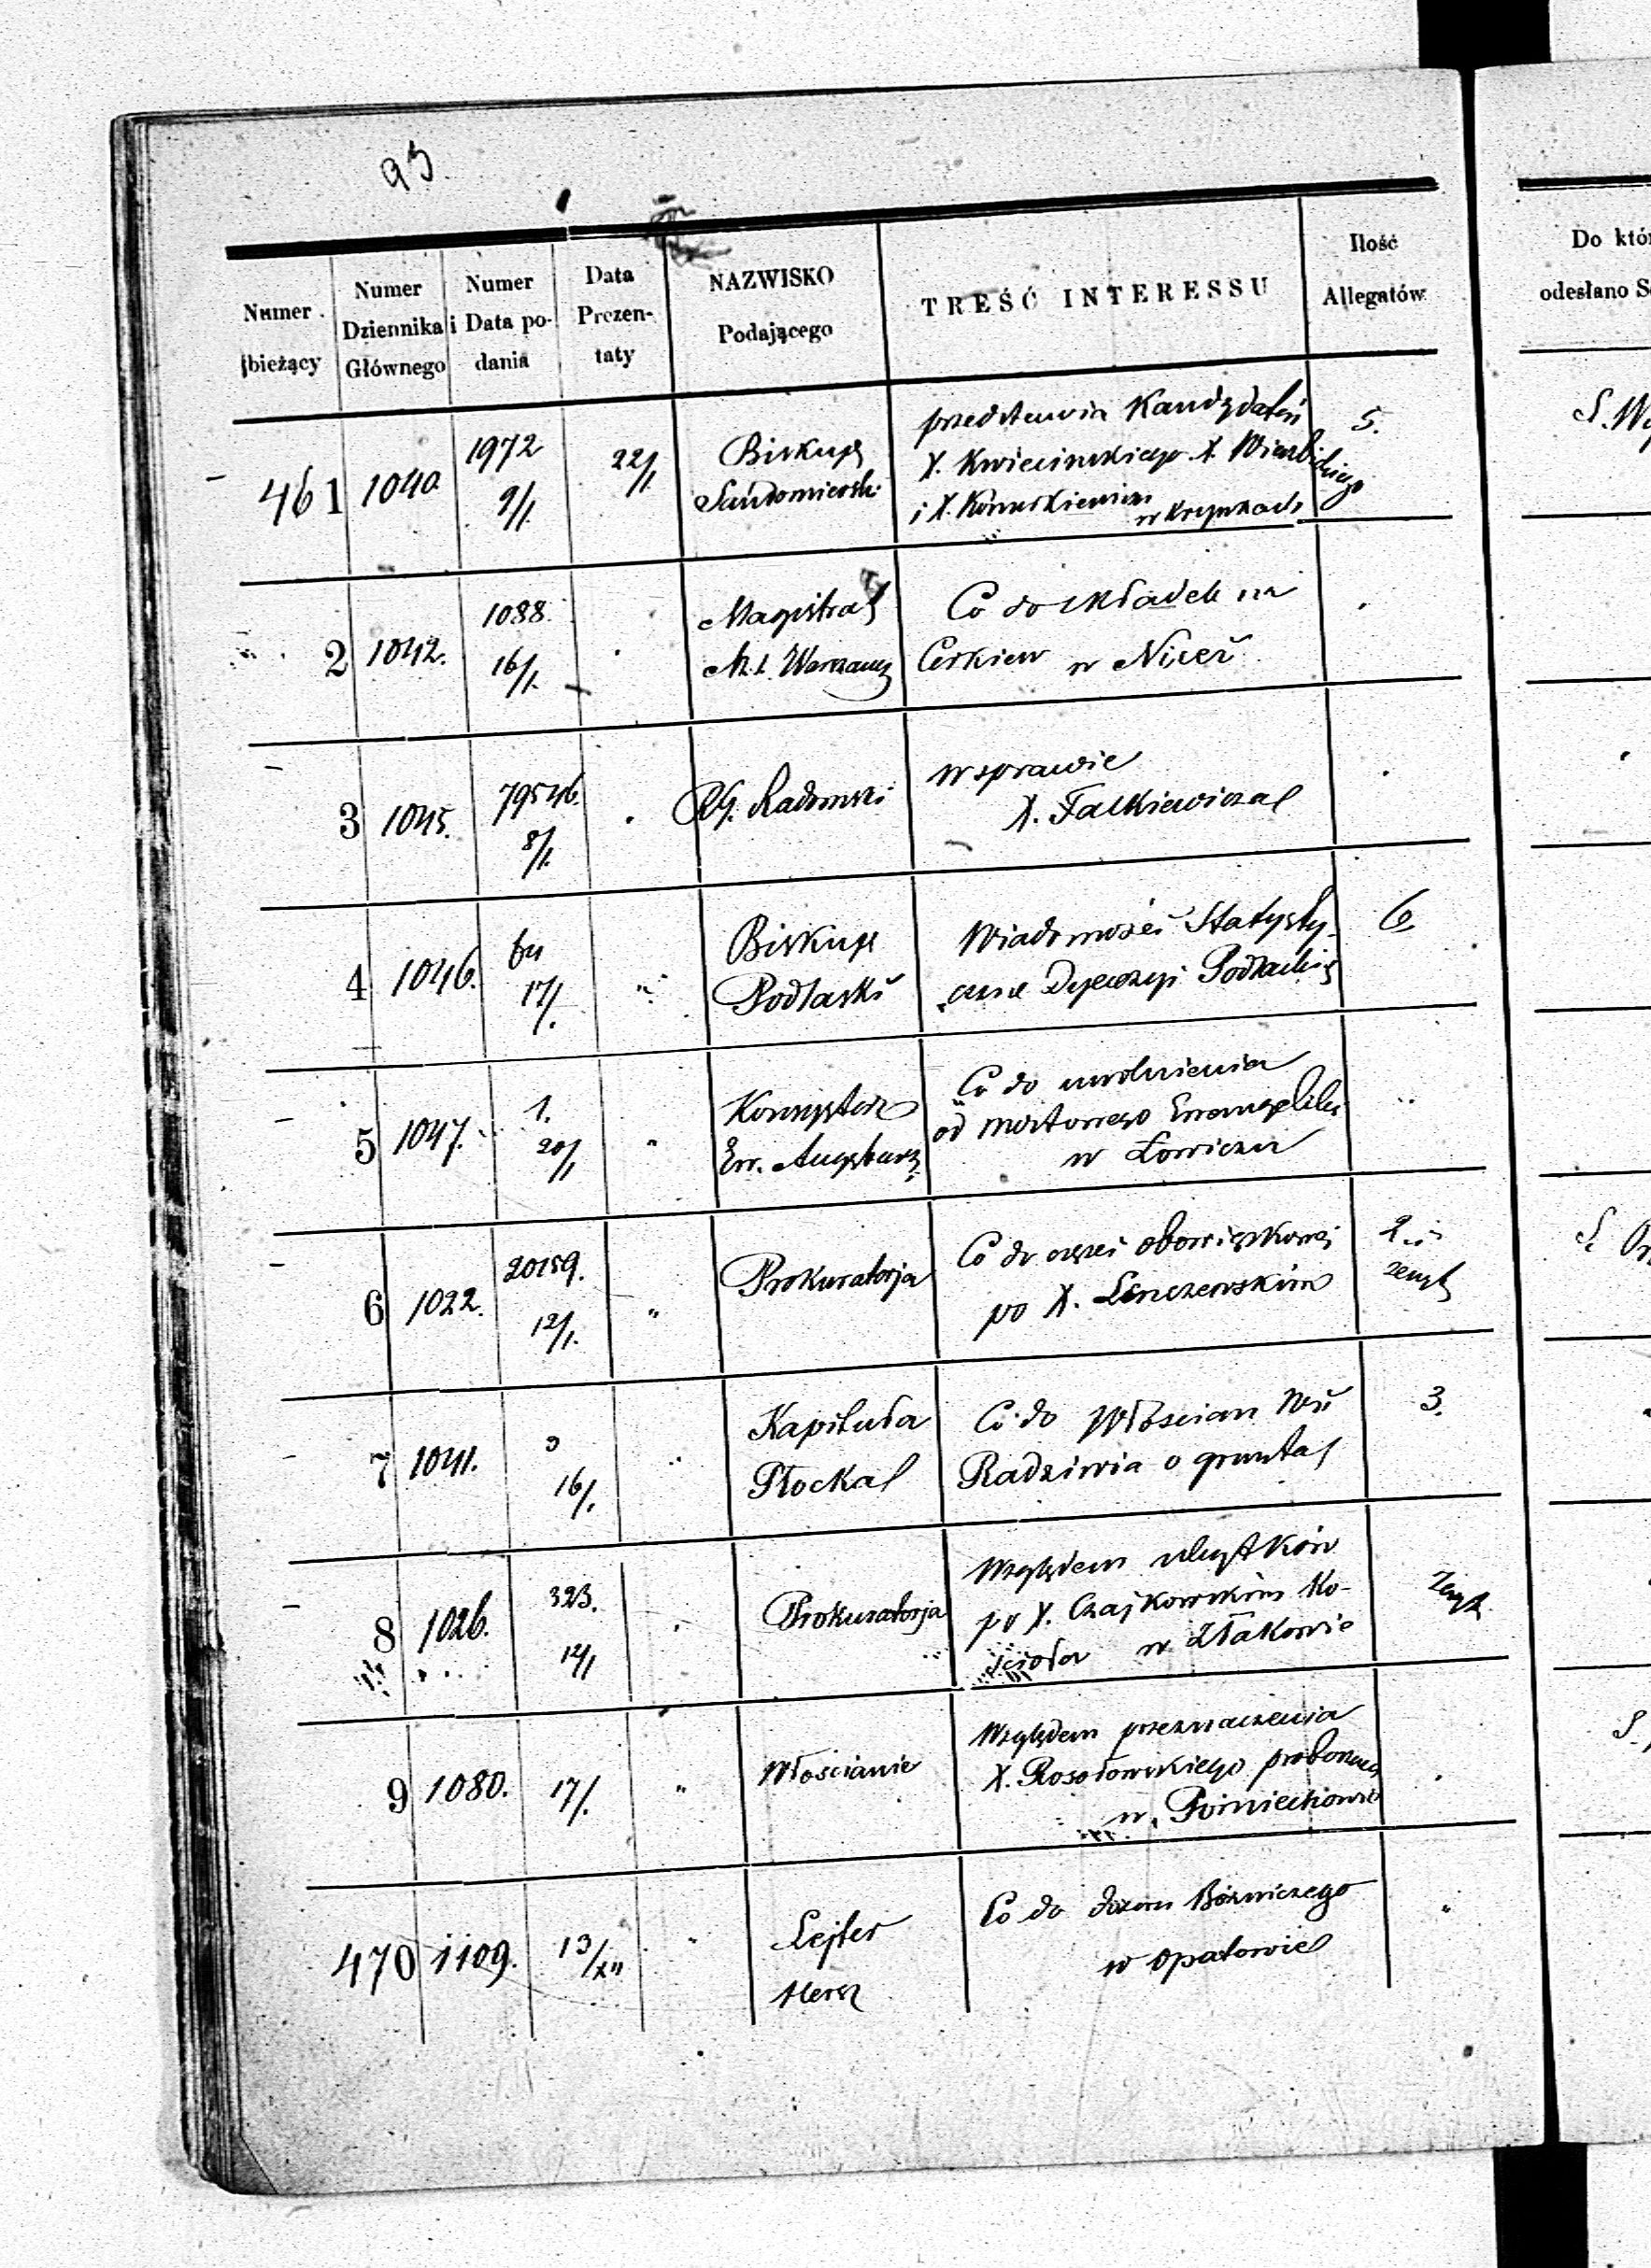 93.
Numer bieżący
Numer Dziennika Głównego
Numer i Data podania
Data Prezentaty
NAZWISKO Podającego
TREŚĆ INTERESSU
Ilość Allegatów
Do któ
odesłano S
461 1040 1972 9/1. 22/1. Biskup Sandomierski
przedstawia Kandydatów
X. Kwiecińskiego X. Wierzbickiego
i X. w 
5.
2 1042. 1088. 16/1. Magistrat M. S. Warszawy
Co do składek na
Cerkiew w Nicei
3 1045. 79546 8/1. RG. Radomski
w sprawie
X. Falkiewicza
4 1046. 64 17/1. " Biskup Podlaski
Wiadomości Statysty-
czne Dyecezyi Podlaskiej
6.
5 1047. 1. 20/1 " Konsystorz Ew. Augsburg.
Co do uwolnienia
od mostowego Ewangelików
w Łowiczu
6 1022. 20159. 12/1. " Prokuratorja
Co do części obowiązkowej
po X. Lenczewskim
2 i zeszyt
7 1041. 3 16/1. Kapituła Płocka
Co do Włościan wsi
Radziwia o grunta
3.
8 1026. 323. 12/1 Prokuratorja
Względem użytków
po X. Czajkowskim Ko-
ścioła w Złakowie
Zeszyt
9 1080. 17/1. " Włościanie
Względem przeznaczenia
X. Rosołowskiego proboszcza
w
470 1109. 13/XII " Lejter Hersz
Co do dozoru Bóżniczego
w Opatowie
"